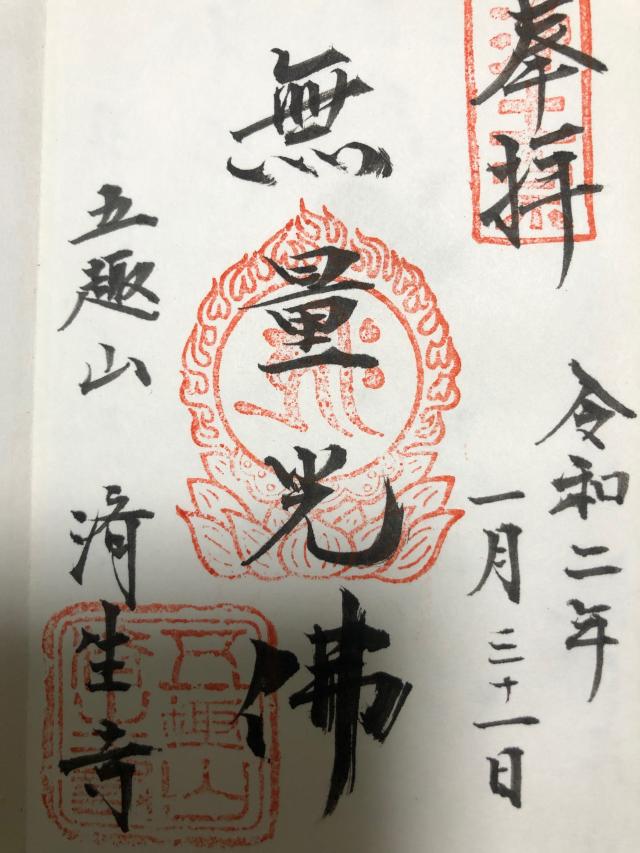 奉拝
令和二年
一月三十一日
無量光佛
五趣山 済生寺
五趣山